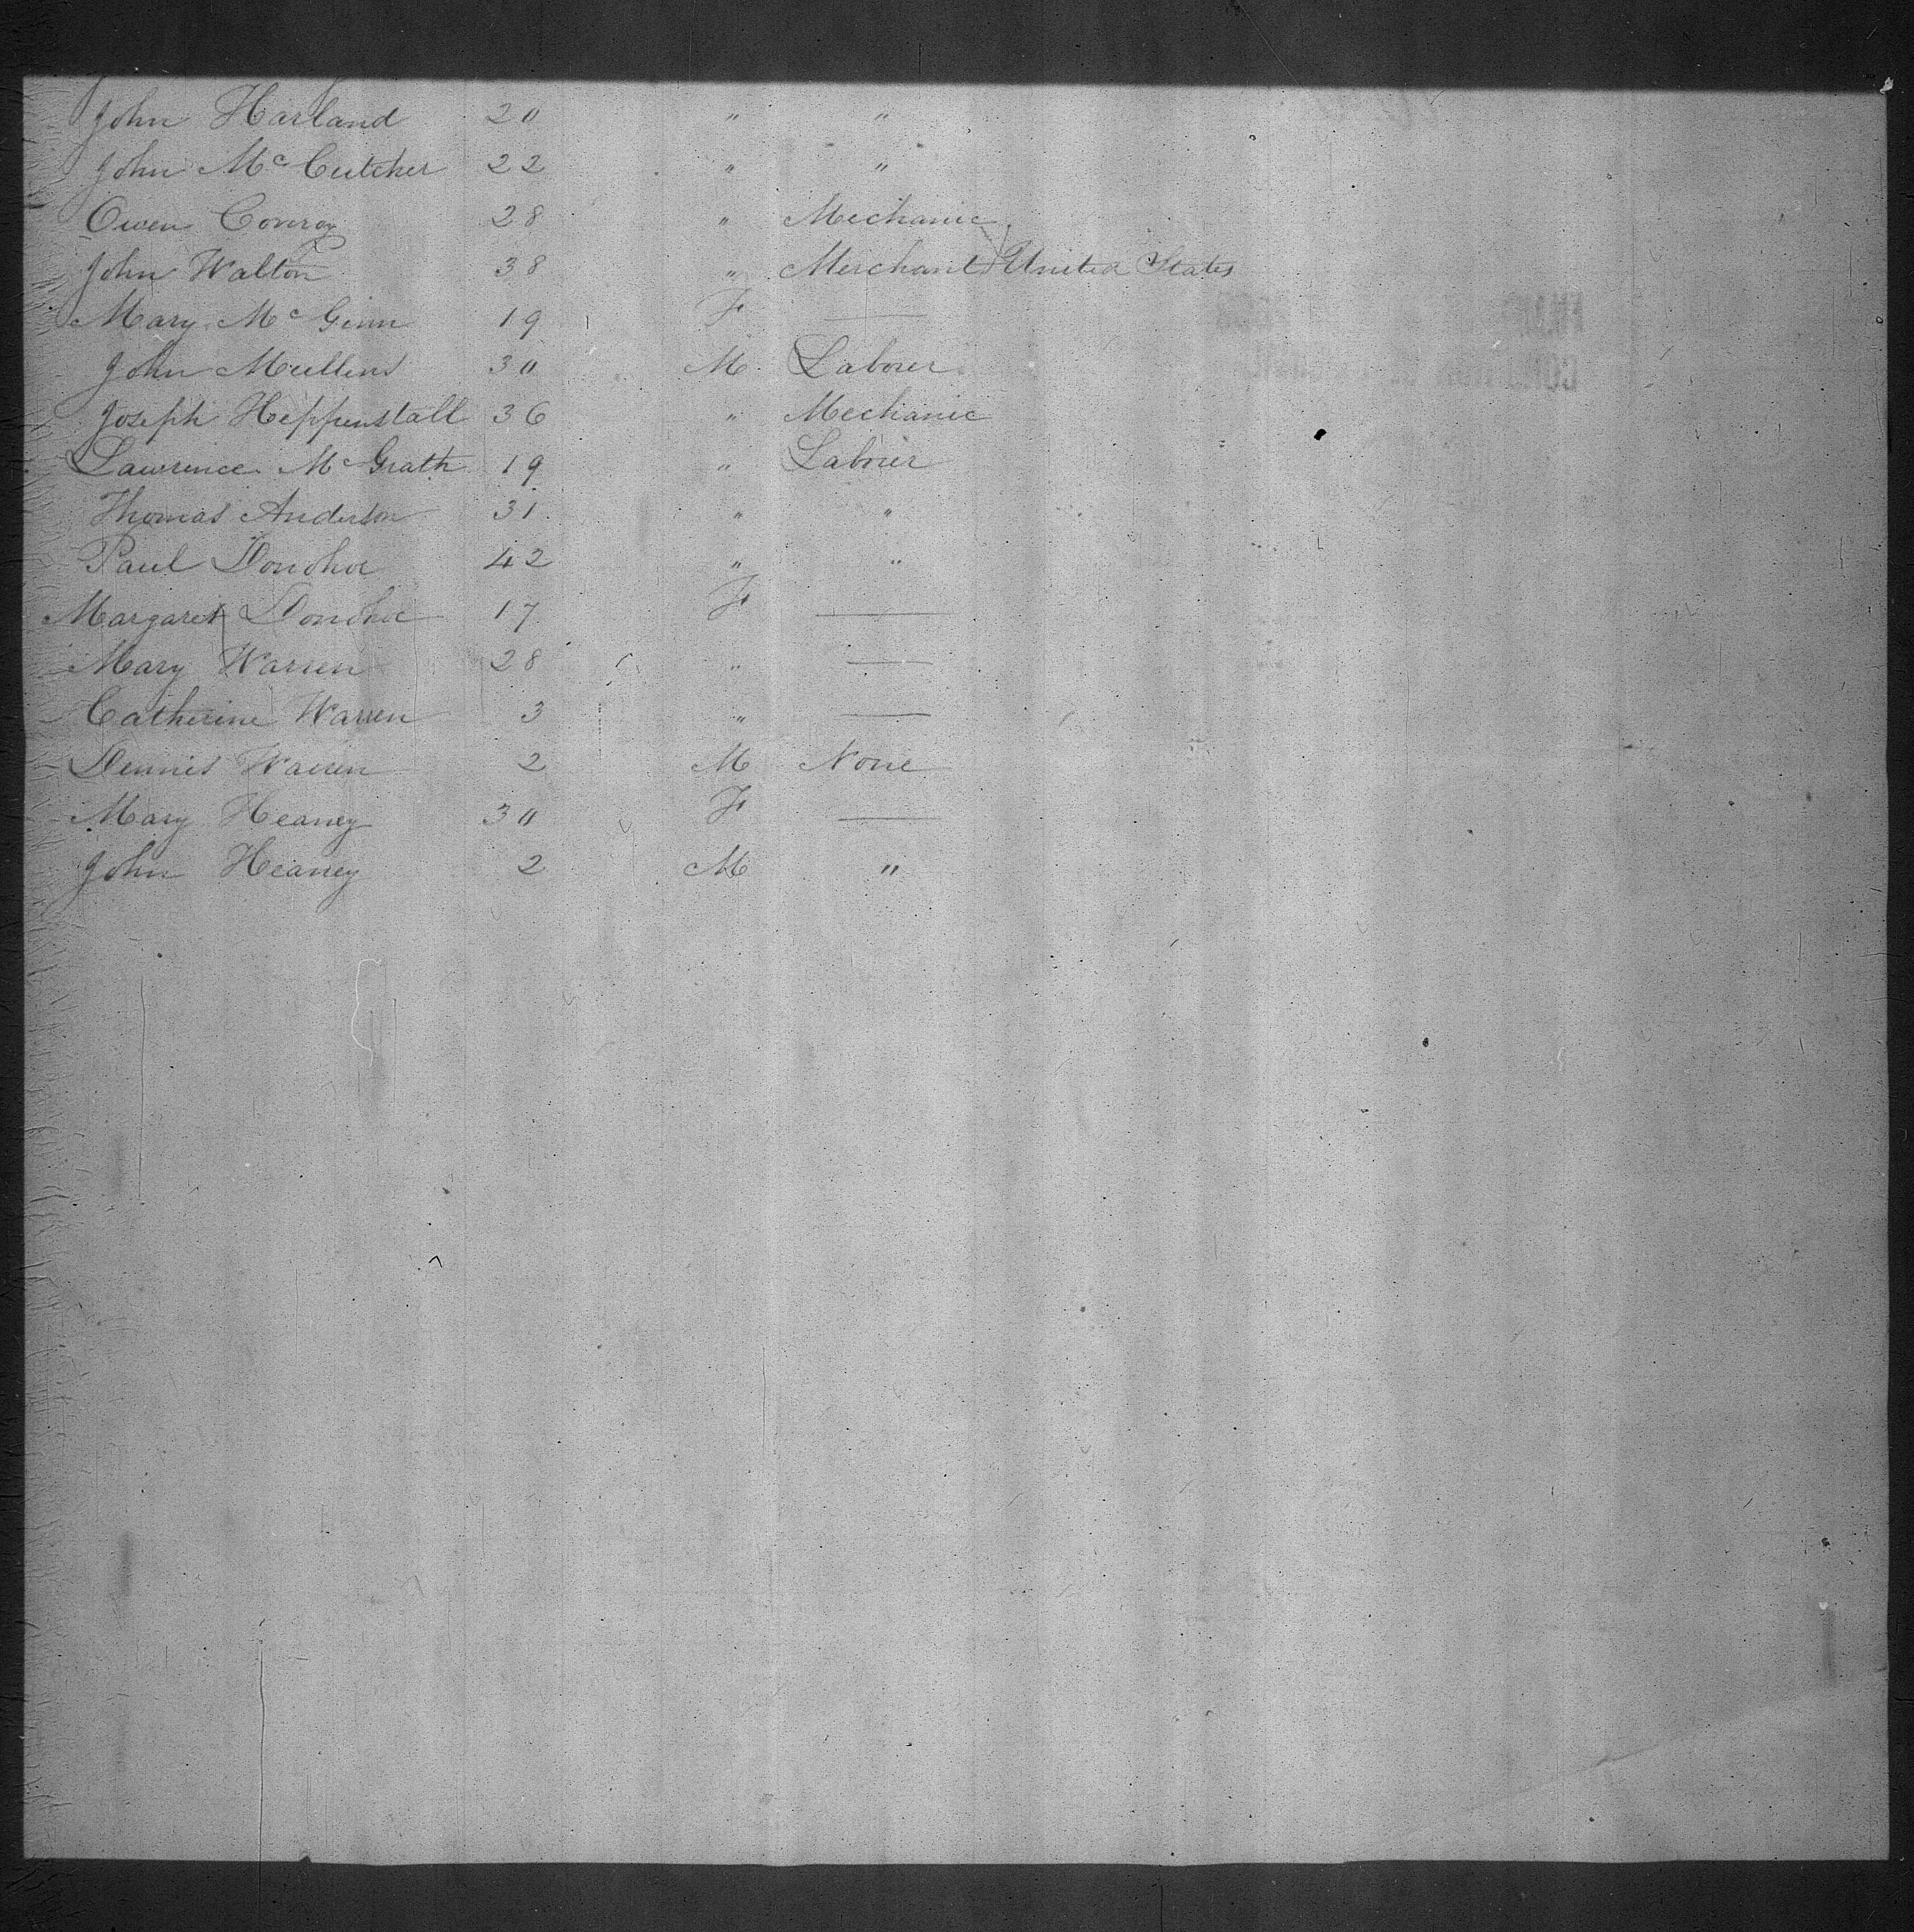 John Harland 20 " "
John McCutcher 22 " "
Owen Conroy 28 " Mechanic
John Walton 38 " Merchant United States
Mary McGinn 19 F —
John Mullens 30 M Laborer
Joseph Heppenstall 36 " Mechanic
Lawrence McGrath 19 " Laborer
Thomas Anderson 31 " "
Paul Donohoe 42 " "
Margaret Donohoe 17 F —
Mary Warren 28 " —
Catherine Warren 3 " —
Dennis Warren 2 M None
Mary Heaney 30 F —
John Heaney 2 M "